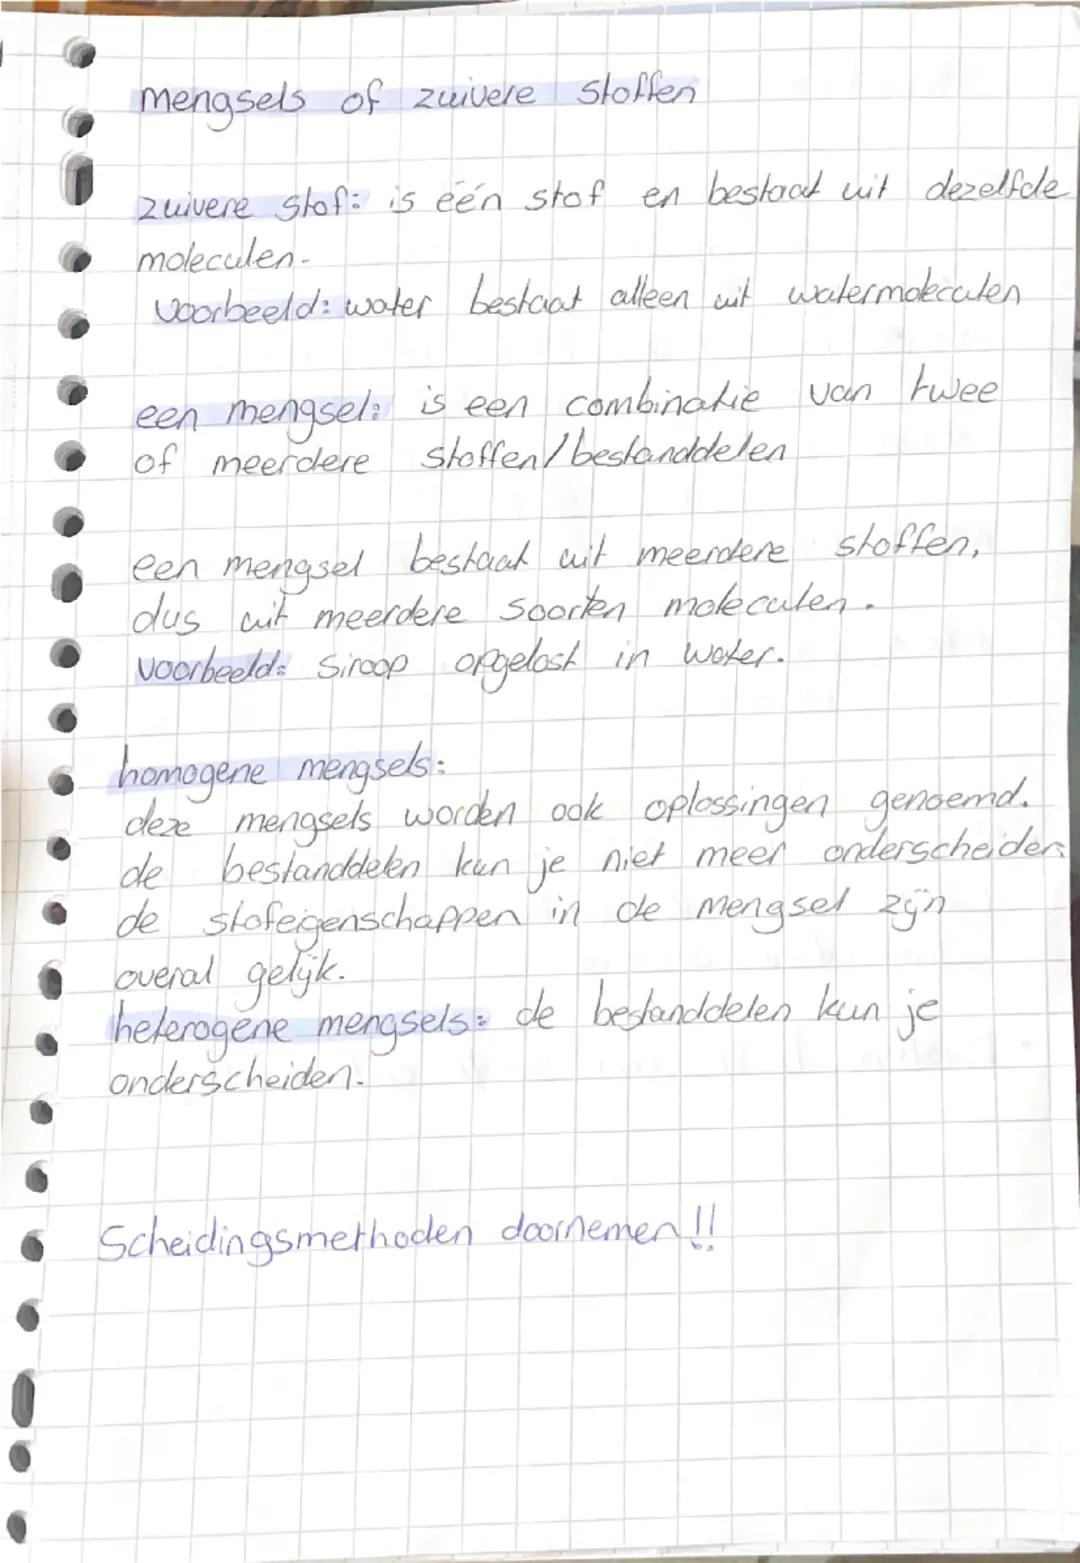 mengsels of zuivere stoffen
zuivere stof: is één stof en bestaat uit dezelfde
moleculen.
voorbeeld: water bestaat alleen uit watermoleculen
een mengsel: is een combinatie van twee
of meerdere stoffen/bestanddelen
een mengsel bestaat uit meerdere stoffen,
dus uit meerdere soorten moleculen.
voorbeeld: siroop opgelost in water.
homogene mengsels:
deze mengsels worden ook oplossingen genoemd.
de bestanddelen kun je niet meer onderscheiden
de stofeigenschappen in de mengsel zijn
overal gelijk.
heterogene mengsels: de bestanddelen kun je
onderscheiden.
Scheidingsmethoden doornemen!!